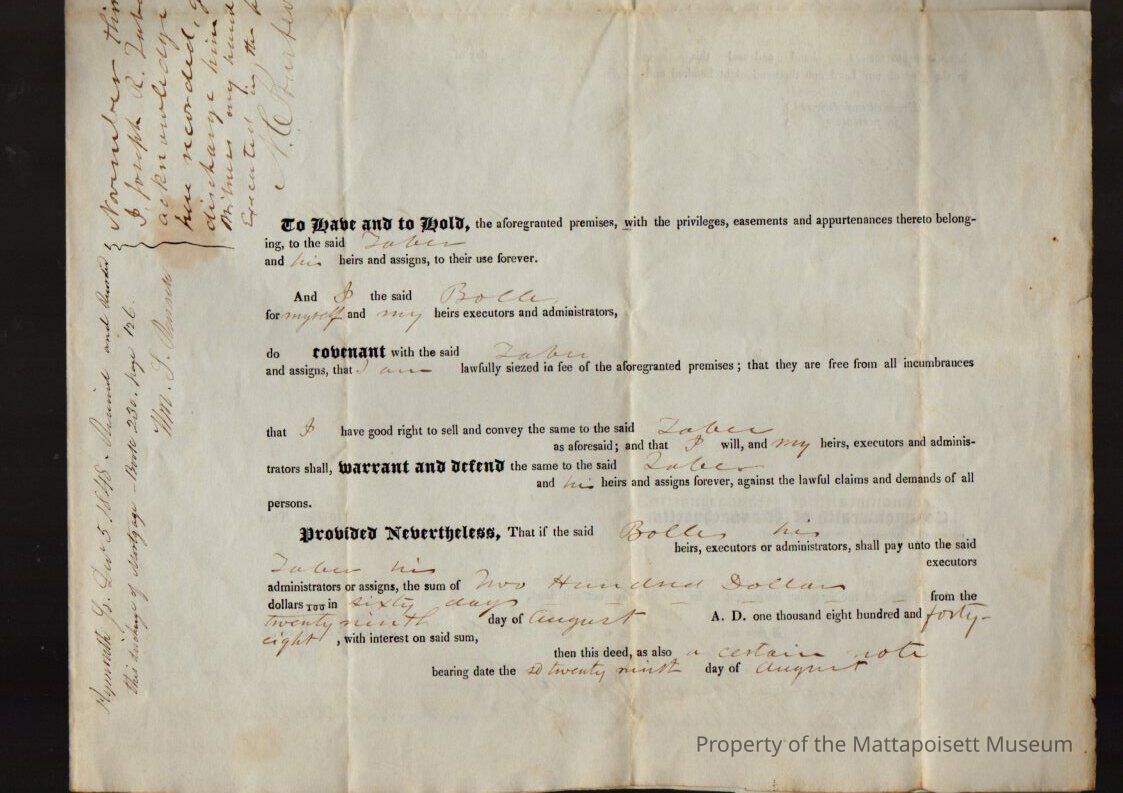 November thir
I, Joseph R. Taber
acknowledge
hue recorded,
discharge him
Witness my hand
Executed in the p
Plymouth Ss. Dec 5. 1848. Received and Recorded
this discharge of Mortgage - Book 230. page 126.
Wm. S.
To Have and to Hold, the aforegranted premises, with the privileges, easements and appurtenances thereto belong-
ing, to the said Taber
and his heirs and assigns, to their use forever.
And I the said Bolles
for myself and my heirs executors and administrators,
do covenant with the said Taber
and assigns, that I am lawfully siezed in fee of the aforegranted premises; that they are free from all incumbrances
that I have good right to sell and convey the same to the said Taber
as aforesaid; and that I will, and my heirs, executors and adminis-
trators shall, warrant and defend the same to the said Taber
and his heirs and assigns forever, against the lawful claims and demands of all
persons.
Provided Nevertheless, That if the said Bolles his
heirs, executors or administrators, shall pay unto the said
Taber his executors
administrators or assigns, the sum of Two Hundred Dollars
dollars 100 in sixty days from the
twenty ninth day of August A. D. one thousand eight hundred and forty-
eight, with interest on said sum,
then this deed, as also a certain note
bearing date the sd twenty ninth day of August
Property of the Mattapoisett Museum